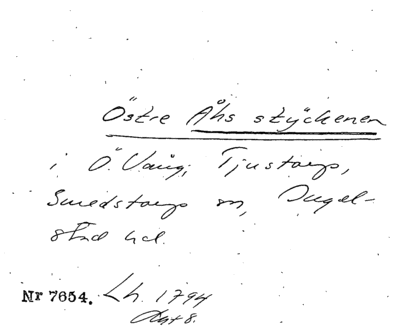 Östre Åhs stÿckenen
i Ö. Vång, Tjustorp,
Smedstorps sn, Ingel-
stad hd.
Nr 7654. Lh. 1794
Akt 8.